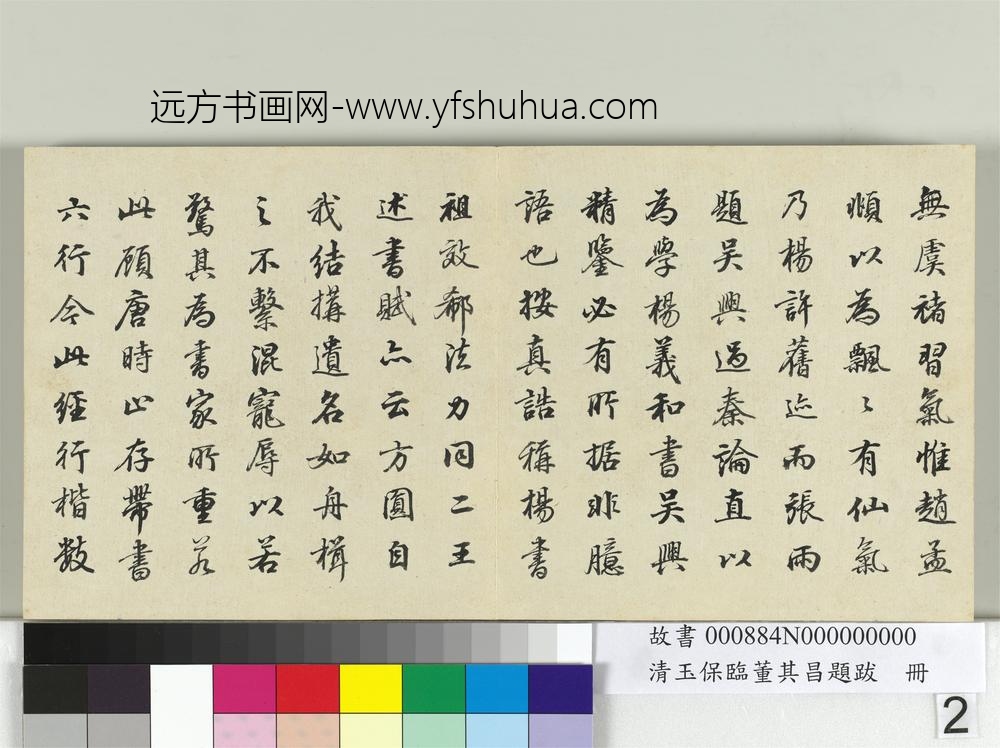 远方书画网-www.yfshuhua.com
無虞褚習氣惟趙孟
頫以為飄〻有仙氣
乃楊許舊迹而張雨
題吴興過秦論直以
為學楊羲和書吴興
精鑒必有所据非臆
語也按真誥稱楊書
祖效郗法力同二王
述書賦亦云方圓自
我結搆遺名如舟楫
之不繫混寵辱以若
驚其為書家所重若
此顧唐時止存帶書
六行今此經行楷數
故書 000884N000000000
清玉保臨董其昌題跋 冊
2